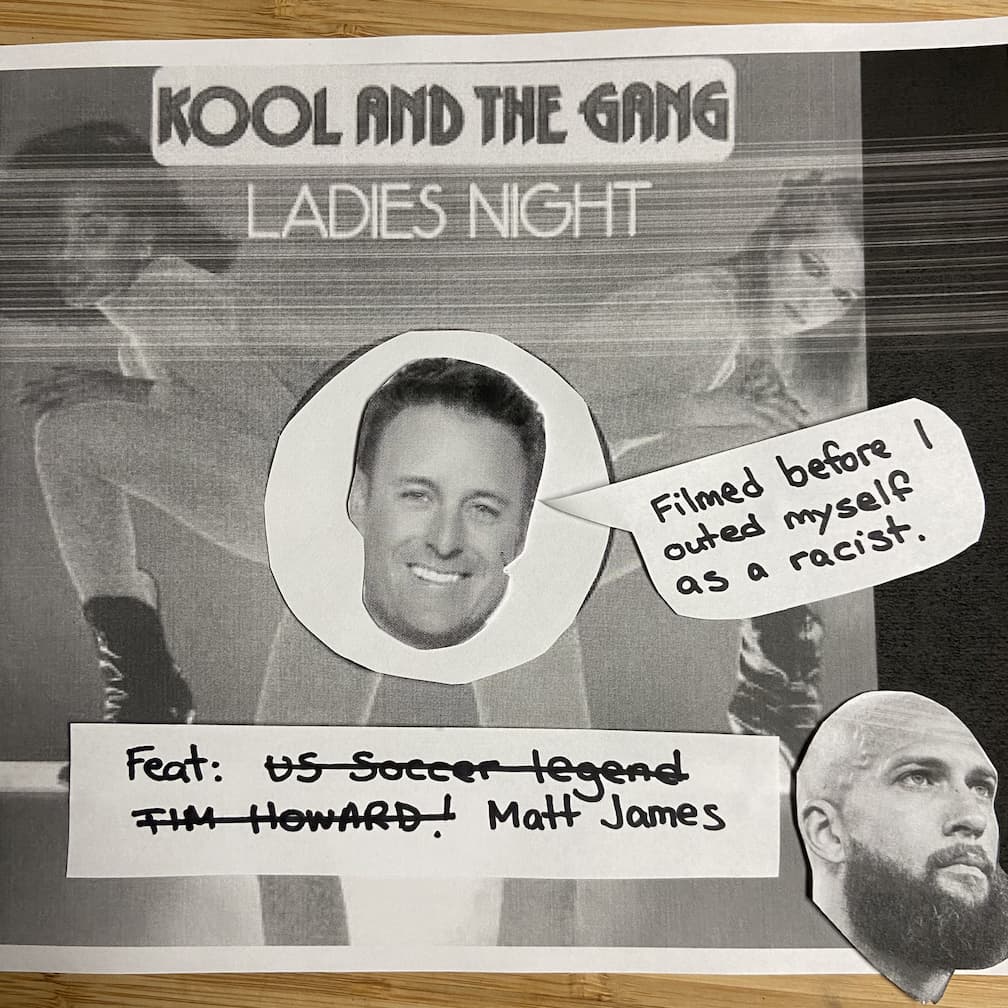 KOOL AND THE GANG
LADIES NIGHT
Filmed before I
outed myself
as a racist.
Feat: US Soccer legend
TIM HOWARD! Matt James